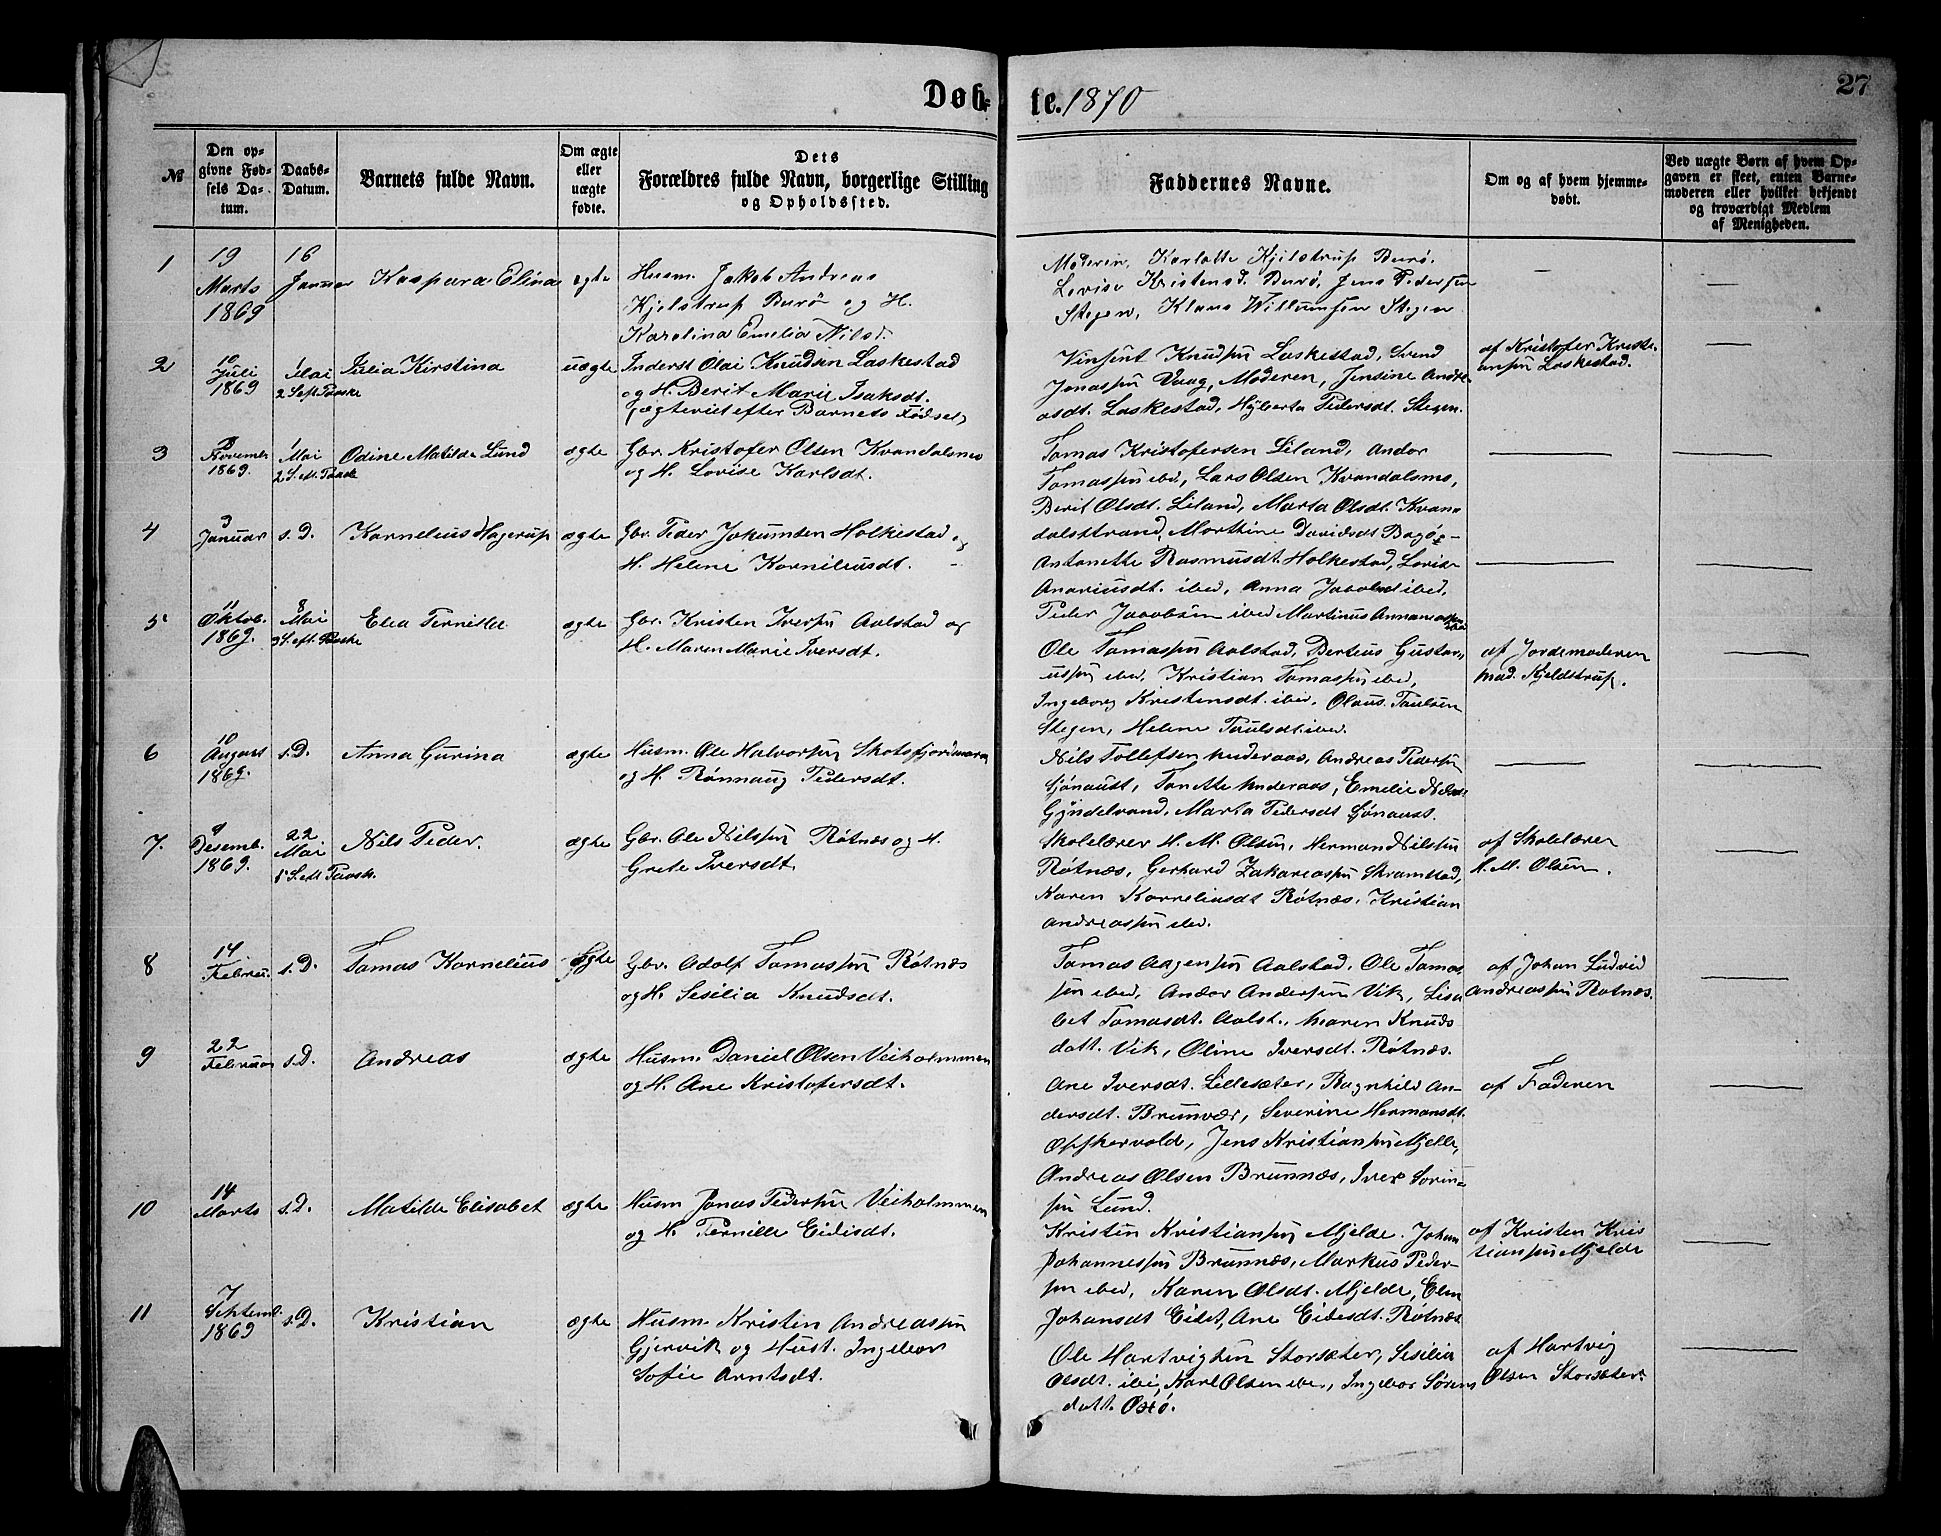 Døb-
te. 1870
27
№
Den op-
givne Fød-
sels Da-
tum.
Daabs-
Datum.
Barnets fulde Navn.
Om ægte
eller
uægte
fødte.
Dets
Forældres fulde Navn, borgerlige Stilling
og Opholdssted.
Faddernes Navne.
Om og af hvem hjemme-
døbt.
Ved uægte Børn af hvem Op-
gaven er skeet, enten Barne-
moderen eller hvilket bekjendt
og troværdigt Medlem
af Menigheden.
1
19
Marts
1869
16
Januar
Kaspara Elina
ægte
Husm. Jakob Andreas
Kjelstrup Burø og H.
Karolina Emelia Nilsd.
Moderen, Karlotte Kjilstrup Burø,
Lovise Kristensd. Burø, Jens Pedersen
Stegen, Klaus Willumsen Stegen
2
10
Juli
1869
1 Mai
2 S. eft. Paaske
Julia Kirstina
uægte
Inderst Olai Knudsen Laskestad
og H. Berit Marie Isaksdt.
(ægteviet efter Barnets Fødsel)
Vinsent Knudsen Laskestad, Svend
Jonassen Vaag, Moderen, Jensine Andre-
asdt. Laskestad, Hylberta Pedersdt. Stegen.
af Kristofer Knuts-
ansen Laskestad.
3
Novemb.
1869.
1
Mai
2 S. eft. Paaske
Odine Matilde Lund
ægte
Gbr. Kristofer Olsen Kvandalsnes
og H. Lovise Karlsdt.
Tomas Kristofersen Liland, Andor
Tomassen ibd, Lars Olsen Kvandalsnes,
Berit Olsdt. Liland, Marta Olsdt. Kvan-
dalsstrand, Morthine Davidsdt Bogø-
4
Januar
s. D.
Kornelius Hagerup
ægte
Gbr. Peder Jakumsen Holkestad og
H. Helene Korneliusdt.
Antonette Rasmusdt. Holkestad, Lovise
Anariusdt. ibed, Anna Jacobsdt ibed,
Peder Jacobsen ibed Martinus Annaniassen ibed
5
11
Oktob.
1869.
8
Mai
3 S. eft. Paaske
Elea Pernille
ægte
Gbr. Kristen Iversen Aalstad og
H. Maren Marie Iversdt.
Ole Tomassen Aalstad, Berteus Gustav-
ussen ibed, Kristian Tomassen ibed,
Ingeborg Kristensdt. ibed, Olaus Paulsen
Stegen, Helene Paulsdt. ibed.
af Jordemoderen
Mad. Kjeldstrup.
6
10
August
1869.
s. D.
Anna Gurina
ægte
Husm. Ole Halvorsen Skotsfjordmark
og H. Rønnaug Pedersdt.
Nils Tollefsen Anderaas, Andreas Pedersen
Sjønaust, Tonette Anderaas, Emelie Nilsdt
Gjøndelvand, Marta Pedersdt Sjønaust.
7.
9
Desemb.
1869.
22
Mai
5 S. eft. Paask.
Nils Peder.
ægte
Gbr. Ole Nilssen Røtnæs og H.
Grete Iversdt.
Skolelærer H. M. Olsen, Herman Nilssen
Røtnæs, Gerhard Zakariassen Skramstad,
Karen Korneliusdt Røtnæs, Kristian
Andreassen ibd.
af Skolelærer
H. M. Olsen.
8
14
Februar
s. D.
Tomas Kornelius
ægte
Gbr. Adolf Tomassen Røtnæs
og H. Sesilia Knudsdt.
Tomas Aagensen Aalstad, Ole Tomas-
sen ibed, Andor Andersen Vik, Lisa-
bet Tomasdt. Aalst., Maren Knuds
datt. Vik, Oline Iversdt. Røtnæs.
af Johan Ludvig
Andreassen Røtnæs.
9
22
Februar
s. D.
Andreas
ægte
Husm. Daniel Olsen Veiholmmen
og H. Ane Kristofersdt.
Ane Iversdt. Lillesæter, Ragnhild An-
dersdt. Brunvær, Severine Hermansdt.
Opskarvold, Jens Kristiansen Mjelle,
Andreas Olsen Brunnæs, Iver Sørin-
sen Lund.
af Faderen
10
14
Marts
s. D.
Matilde Elisabet
ægte
Husm Jonas Pedersen Veiholmmen
og H. Pernille Eidisdt.
Kristen Kristiansen Mjelde. Johan
Johannessen Brunnæs, Markus Peder-
sen ibed, Karen Olsdt. Mjelde, Elen
Johansdt Eidet, Ane Eidesdt. Røtnæs
af Kristen Kris
tiansen Mjelde
11
7
Septemb.
1869
s. D.
Kristian
ægte
Husm. Kristen Andreassen
Gjervik og Hust. Ingebor
Sofie Arntsdt.
Ole Hartvigsen Storsæter, Sesilia
Olsdt. ibi, Karl Olsen ibed, Ingebor Sørens
datt. Oxø.
af Hartvig
Olsen Storsæter